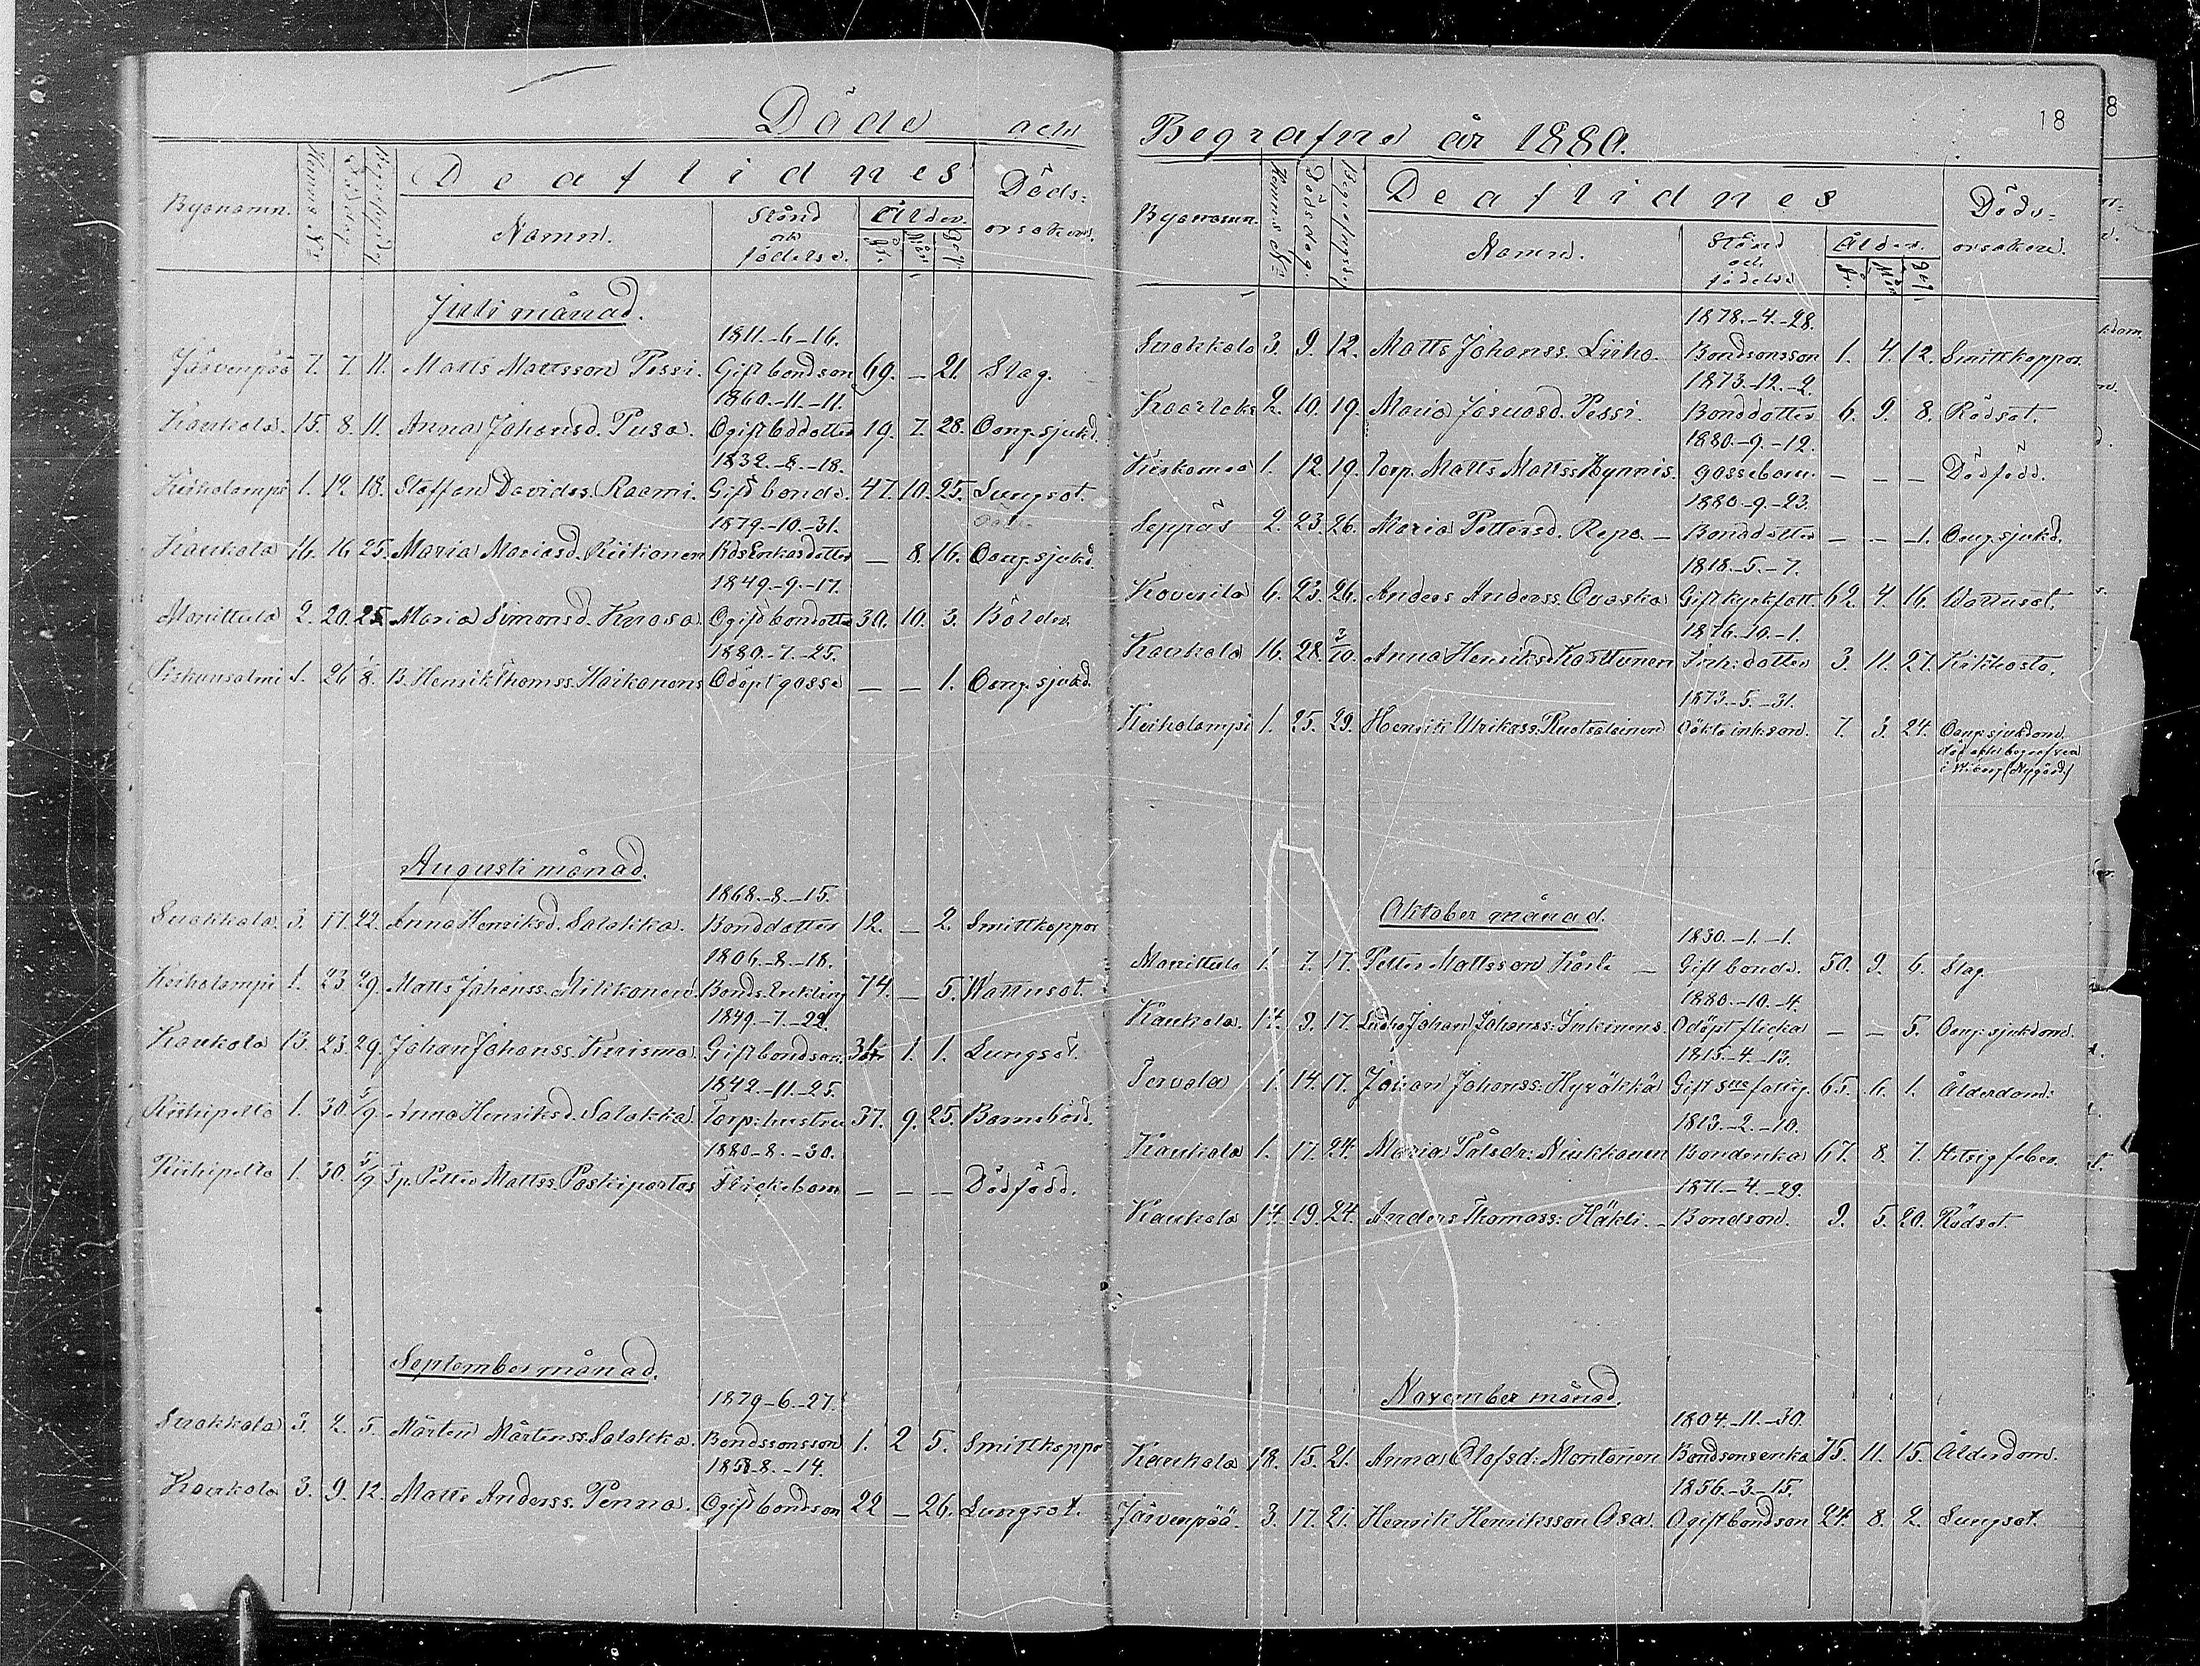 Döde och
Byanamn. Hemma No Dödsdag Begrafn.dag De aflidnes Döds-orsaken.
Namn. Stånd och födelse. Ålder. år. mån. dag.
Juli månad.
1811.-6-16.
Järvenpää 7. 7. 11. Matts Mattsson Pessi. Gift bondson 69. — 21. Slag.
1860.-11.-11.
Kaukola. 15. 8. 11. Anna Johansd. Pusa. Ogift bddotter 19. 7. 28. Oang. sjukd.
1832.-8.-18.
Keiholampi 1. 12. 18. Staffan Davidss. Raami. Gift bonde. 47. 10. 25. Lungsot.
1879.-10.-31.
Kaukola 16. 16 25. Maria Mariasd. Riikonen Bds Enkas dotter — 8. 16. Oang. sjukd.
1849.-9.-17.
Manittula 2. 20. 25. Maria Simonsd. Kuosa. Ogift bondotter 30. 10. 3. Bölder.
1880.-7.-25.
Liskunsalmi 1. 26 1/8. B. Henrik Thomss. Haikonens Odöpt gosse — — 1. Oang. sjukd.
Augusti månad.
1868.-8.-15.
Suokkala. 3. 17. 22. Anna Henriksd. Salakka. Bonddotter 12. — 2. Smittkoppor
1806.-8.-18.
Keiholampi 1. 23 29. Matts Johanss. Mikkonen. Bonds. Enkling 74. — 5. Wattusot.
1849.-7.-22.
Kaukola 13. 23. 29. Johan Johanss. Kurisma. Gift bondson. 31. 1. 1. Lungsot.
1842.-11.-25.
Riihipelto 1. 30. 5/9. Anna Henriksd. Salakka. Torp: hustru 37. 9. 25. Barnsbörd.
1880-8.-30.
Riihipelto 1. 30. 5/9 Tp. Petter Mattss. Paskipartas Flickebarn — — — Dödfödd.
September månad.
1879-6.-27.
Suokkala 3. 2. 5. Mårten Mårtenss. Salakka. Bondssonsson 1. 2 5. Smittkoppor
1858-8.-14.
Kaukola 3. 9. 12. Matts Anderss. Penna. Ogift bondson 22 — 26. Lungsot.
18
Begrafne år 1880.
Byanamn. Hemma No Dödsdag. Begrafn.dag De aflidnes Döds-orsaken.
Namn. Stånd och födelse Ålder. år. mån dag.
1878.-4.-28.
Suokkala 3. 9. 12. Matts Johanss. Liiho. Bondsonsson 1. 4. 12. Smittkoppor.
1873.-12.-2.
Kaarlaks 2. 10. 19. Maria Josuasd. Pessi. Bonddotter 6. 9. 8. Rödsot.
1880.-9.-12.
Kiiskomaa 1. 12. 19. Torp. Matts Mattss. Hynnis. gossebarn. — — — Dödfödd.
1880.-9-23.
Seppäs 2. 23. 26. Maria Pettersd. Repo. — Bonddotter — — 1. Oang. sjukd.
1818.-5.-7.
Koverila 6. 23. 26. Anders Anderss. Ovaska Gift kyrkfatt. 62. 4. 16. Wattusot.
1876.-10.-1.
Kaukola 16. 28. 3/10. Anna Henriksd. Karttunen Inh: dotter 3. 11. 27. Kikhosta.
1873.-5.-31.
Keiholampi 1. 25. 29. Henrik Ulrikass. Ruotsalainen Oäkta inh.son. 7. 3. 24. Oang. sjukdom.
död och begrafven
i Wiborg (Nygård)
Oktober månad.
1830.-1.-1.
Manittula 1. 7. 17. Petter Mattsson Kärki — Gift bonde. 50. 9. 6. Slag.
1880.-10.-4.
Kaukola. 14. 9. 17. Johan Johanss: Inkinens. Odöpt flicka — — 5. Oang. sjukdom.
1815.-4.-13.
Tervola 1. 14. 17. Johan Johanss: Hyväkkä Gift fattig. 65. 6. 1. Ålderdom.
1813.-2.-10.
Kaukola 1. 17. 24. Maria Pålsdr: Niukkanen Bondenka 67. 8. 7. Hitsig feber.
1871.-4.-29.
Kaukola 14. 19. 24. Anders Thomass: Häkli. — Bondson. 9. 5. 20. Rödsot
November månad.
1804.-11.-30.
Kaukola 18. 15. 21. Anna Olofsd: Montonen Bondsonsenka 75. 11. 15. Ålderdom.
1856.-3.-15.
Järvenpää. 3. 17. 21. Henrik Henriksson Asa. Ogift bondson 24. 8. 2. Lungsot.